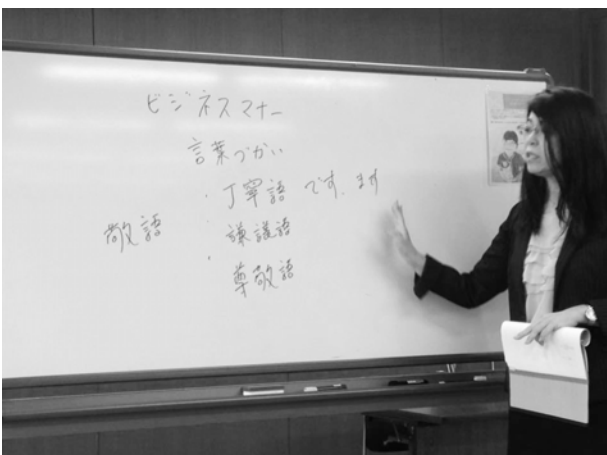 ビジネスマナー
言葉づかい
・丁寧語 です、ます
敬語 謙譲語
・
尊敬語